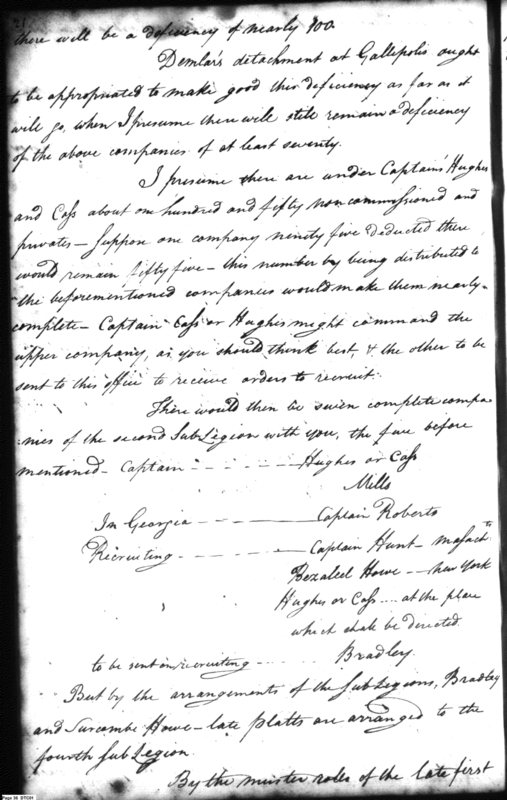 21
there will be a deficiency of nearly 100.
Demlar's detachment at Gallepolis ought
to be appropriated to make good this deficiency as far as it
will go, when I presume there will still remain a deficiency
of the above companies of at least seventy.
I presume there are under Captain's Hughes
and Cass about one hundred and fifty noncommissioned and
privates – Suppose one company ninety five deducted there
would remain fifty five – this number by being distributed to
the beforementioned companies would make them nearly
complete – Captain Cass or Hughes might command the
upper company, as you should think best, & the other to be
sent to this office to receive orders to recruit.
There would then be seven complete compa
nies of the second Sub Legion with you, the five before
mentioned – Captain – – – – – – Hughes or Cass
Mills
In Georgia – – – – Captain Roberts
Recruiting – – – – – Captain Hunt – Massacts
Bezaleel Howe – New York
Hughes or Cass .... at the place
which shall be directed.
to be sent on recruiting – – – – – Bradley.
But by the arrangements of the Sub Legions, Bradley
and Howe – late Platts are arranged to the
fourth Sub Legion.
By the muster rolls of the late first
Page 36 BTC01